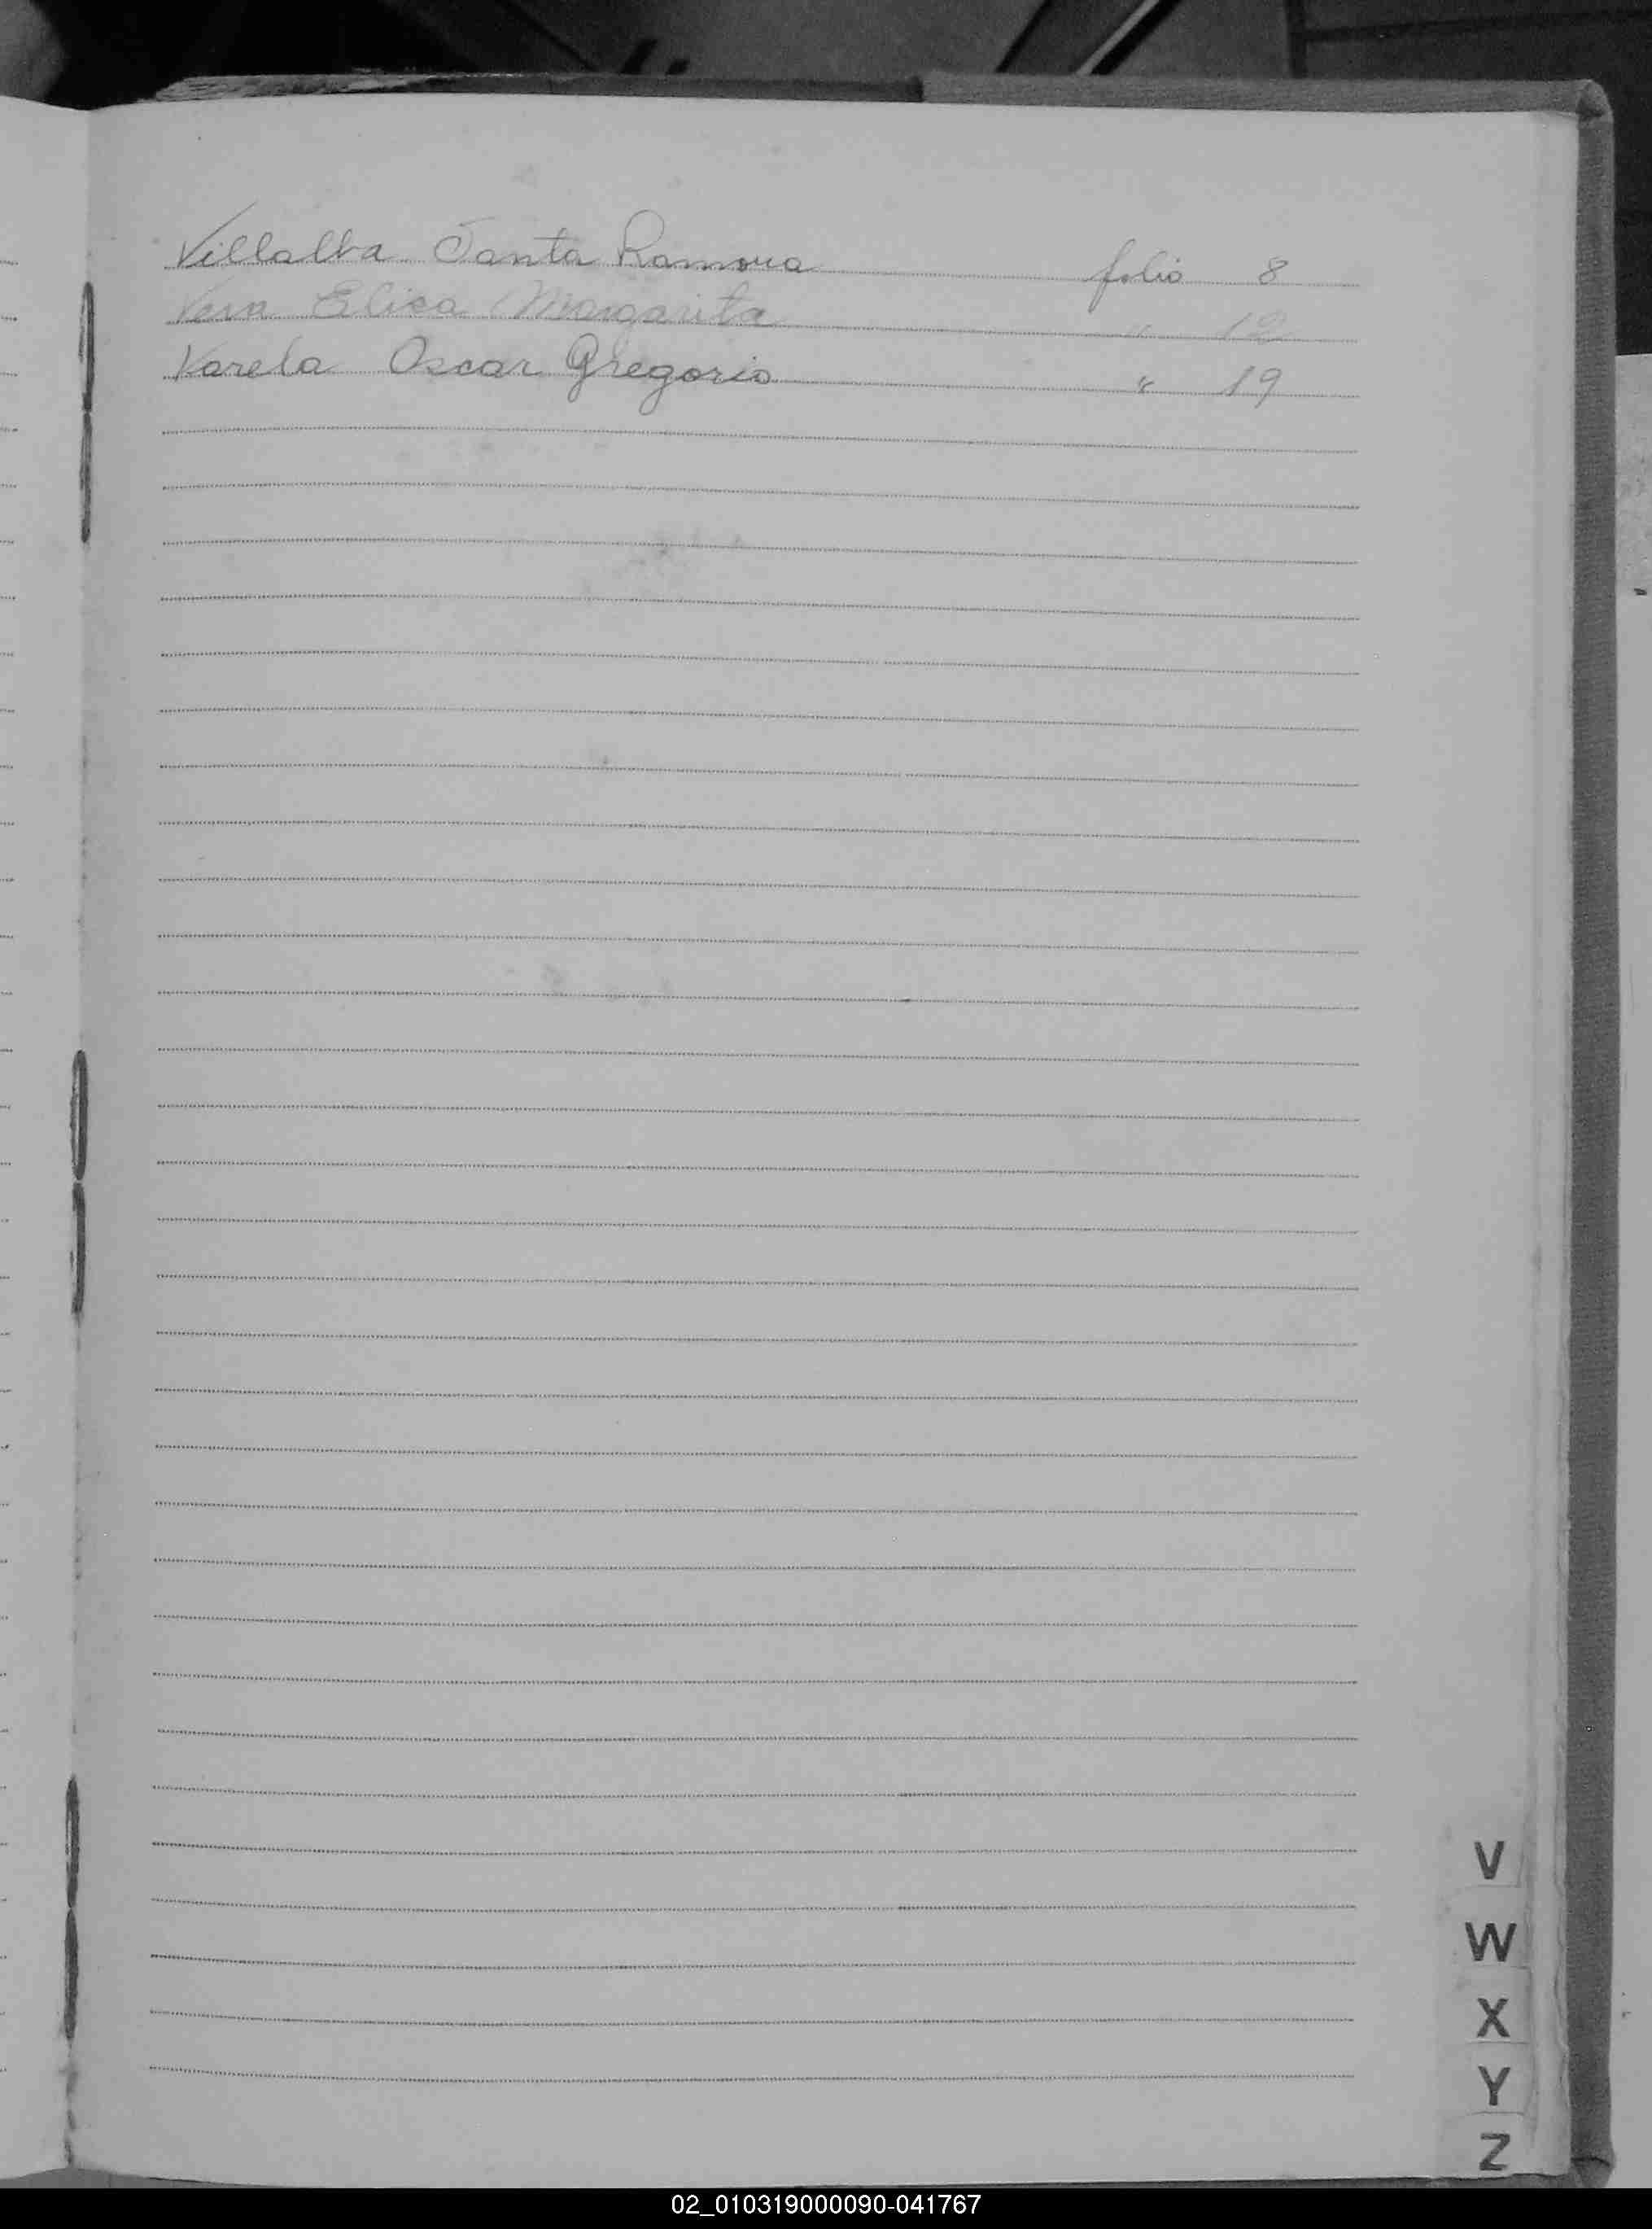 Villalba Santa Ramona folio 8
Vera Elisa Margarita " 12
Varela Oscar Gregorio " 19
V
W
X
Y
Z
02_010319000090-041767